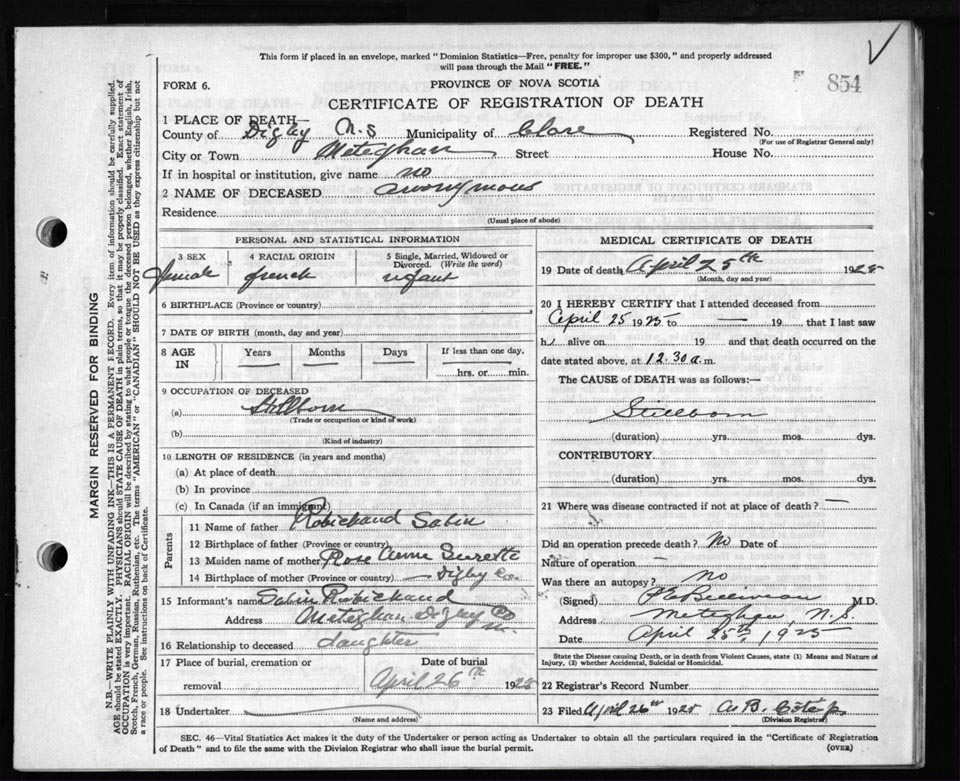 This form if placed in an envelope, marked "Dominion Statistics—Free, penalty for improper use $300," and properly addressed
will pass through the Mail "FREE."
854
FORM 6.
PROVINCE OF NOVA SCOTIA
CERTIFICATE OF REGISTRATION OF DEATH
1 PLACE OF DEATH—
County of Digby N.S Municipality of Clare Registered No.
(For use of Registrar General only)
City or Town Meteghan Street House No.
If in hospital or institution, give name no
2 NAME OF DECEASED anonymous
Residence
(Usual place of abode)
PERSONAL AND STATISTICAL INFORMATION
3 SEX 4 RACIAL ORIGIN 5 Single, Married, Widowed or
Divorced. (Write the word)
female french infant
6 BIRTHPLACE (Province or country)
7 DATE OF BIRTH (month, day and year)
8 AGE IN Years Months Days If less than one day,
hrs. or min.
9 OCCUPATION OF DECEASED
(a) Stillborn
(Trade or occupation or kind of work)
(b)
(Kind of industry)
10 LENGTH OF RESIDENCE (in years and months)
(a) At place of death
(b) In province
(c) In Canada (if an immigrant)
Parents
11 Name of father Robichaud Sabin
12 Birthplace of father (Province or country)
13 Maiden name of mother Rose Anne Surette
14 Birthplace of mother (Province or country) — Digby Co.
15 Informant's name Sabin Robichaud
Address Meteghan Digby Co
16 Relationship to deceased daughter
17 Place of burial, cremation or removal Date of burial
April 26th 1925
18 Undertaker
(Name and address)
MEDICAL CERTIFICATE OF DEATH
19 Date of death April 25th 1925
(Month, day and year)
20 I HEREBY CERTIFY that I attended deceased from
April 25 1925 to — 19 , that I last saw
h alive on 19 and that death occurred on the
date stated above, at 12.30 a. m.
The CAUSE OF DEATH was as follows:—
Stillborn
(duration) yrs. mos. dys.
CONTRIBUTORY
(duration) yrs. mos. dys.
21 Where was disease contracted if not at place of death? —
Did an operation precede death? No Date of
Nature of operation —
Was there an autopsy? no
(Signed) M.D.
Address Meteghan, N.S.
Date April 25th, 1925
State the Disease causing Death, or in death from Violent Causes, state (1) Means and Nature of
Injury, (2) whether Accidental, Suicidal or Homicidal.
22 Registrar's Record Number
23 Filed April 26th 1925
(Division Registrar)
SEC. 46—Vital Statistics Act makes it the duty of the Undertaker or person acting as Undertaker to obtain all the particulars required in the "Certificate of Registration
of Death" and to file the same with the Division Registrar who shall issue the burial permit.
(OVER)
MARGIN RESERVED FOR BINDING
N.B.—WRITE PLAINLY WITH UNFADING INK—THIS IS A PERMANENT RECORD. Every item of information should be carefully supplied.
AGE should be stated EXACTLY. PHYSICIANS should STATE CAUSE OF DEATH in plain terms, so that it may be properly classified. Exact statement of
OCCUPATION is very important. RACIAL ORIGIN will be described by stating to what people or tongue the deceased person belonged, whether English, Irish,
Scotch, French, German, Russian, Ruthenian, etc. The terms "AMERICAN" or "CANADIAN" SHOULD NOT BE USED as they express citizenship but not
a race or people. See instructions on back of Certificate.